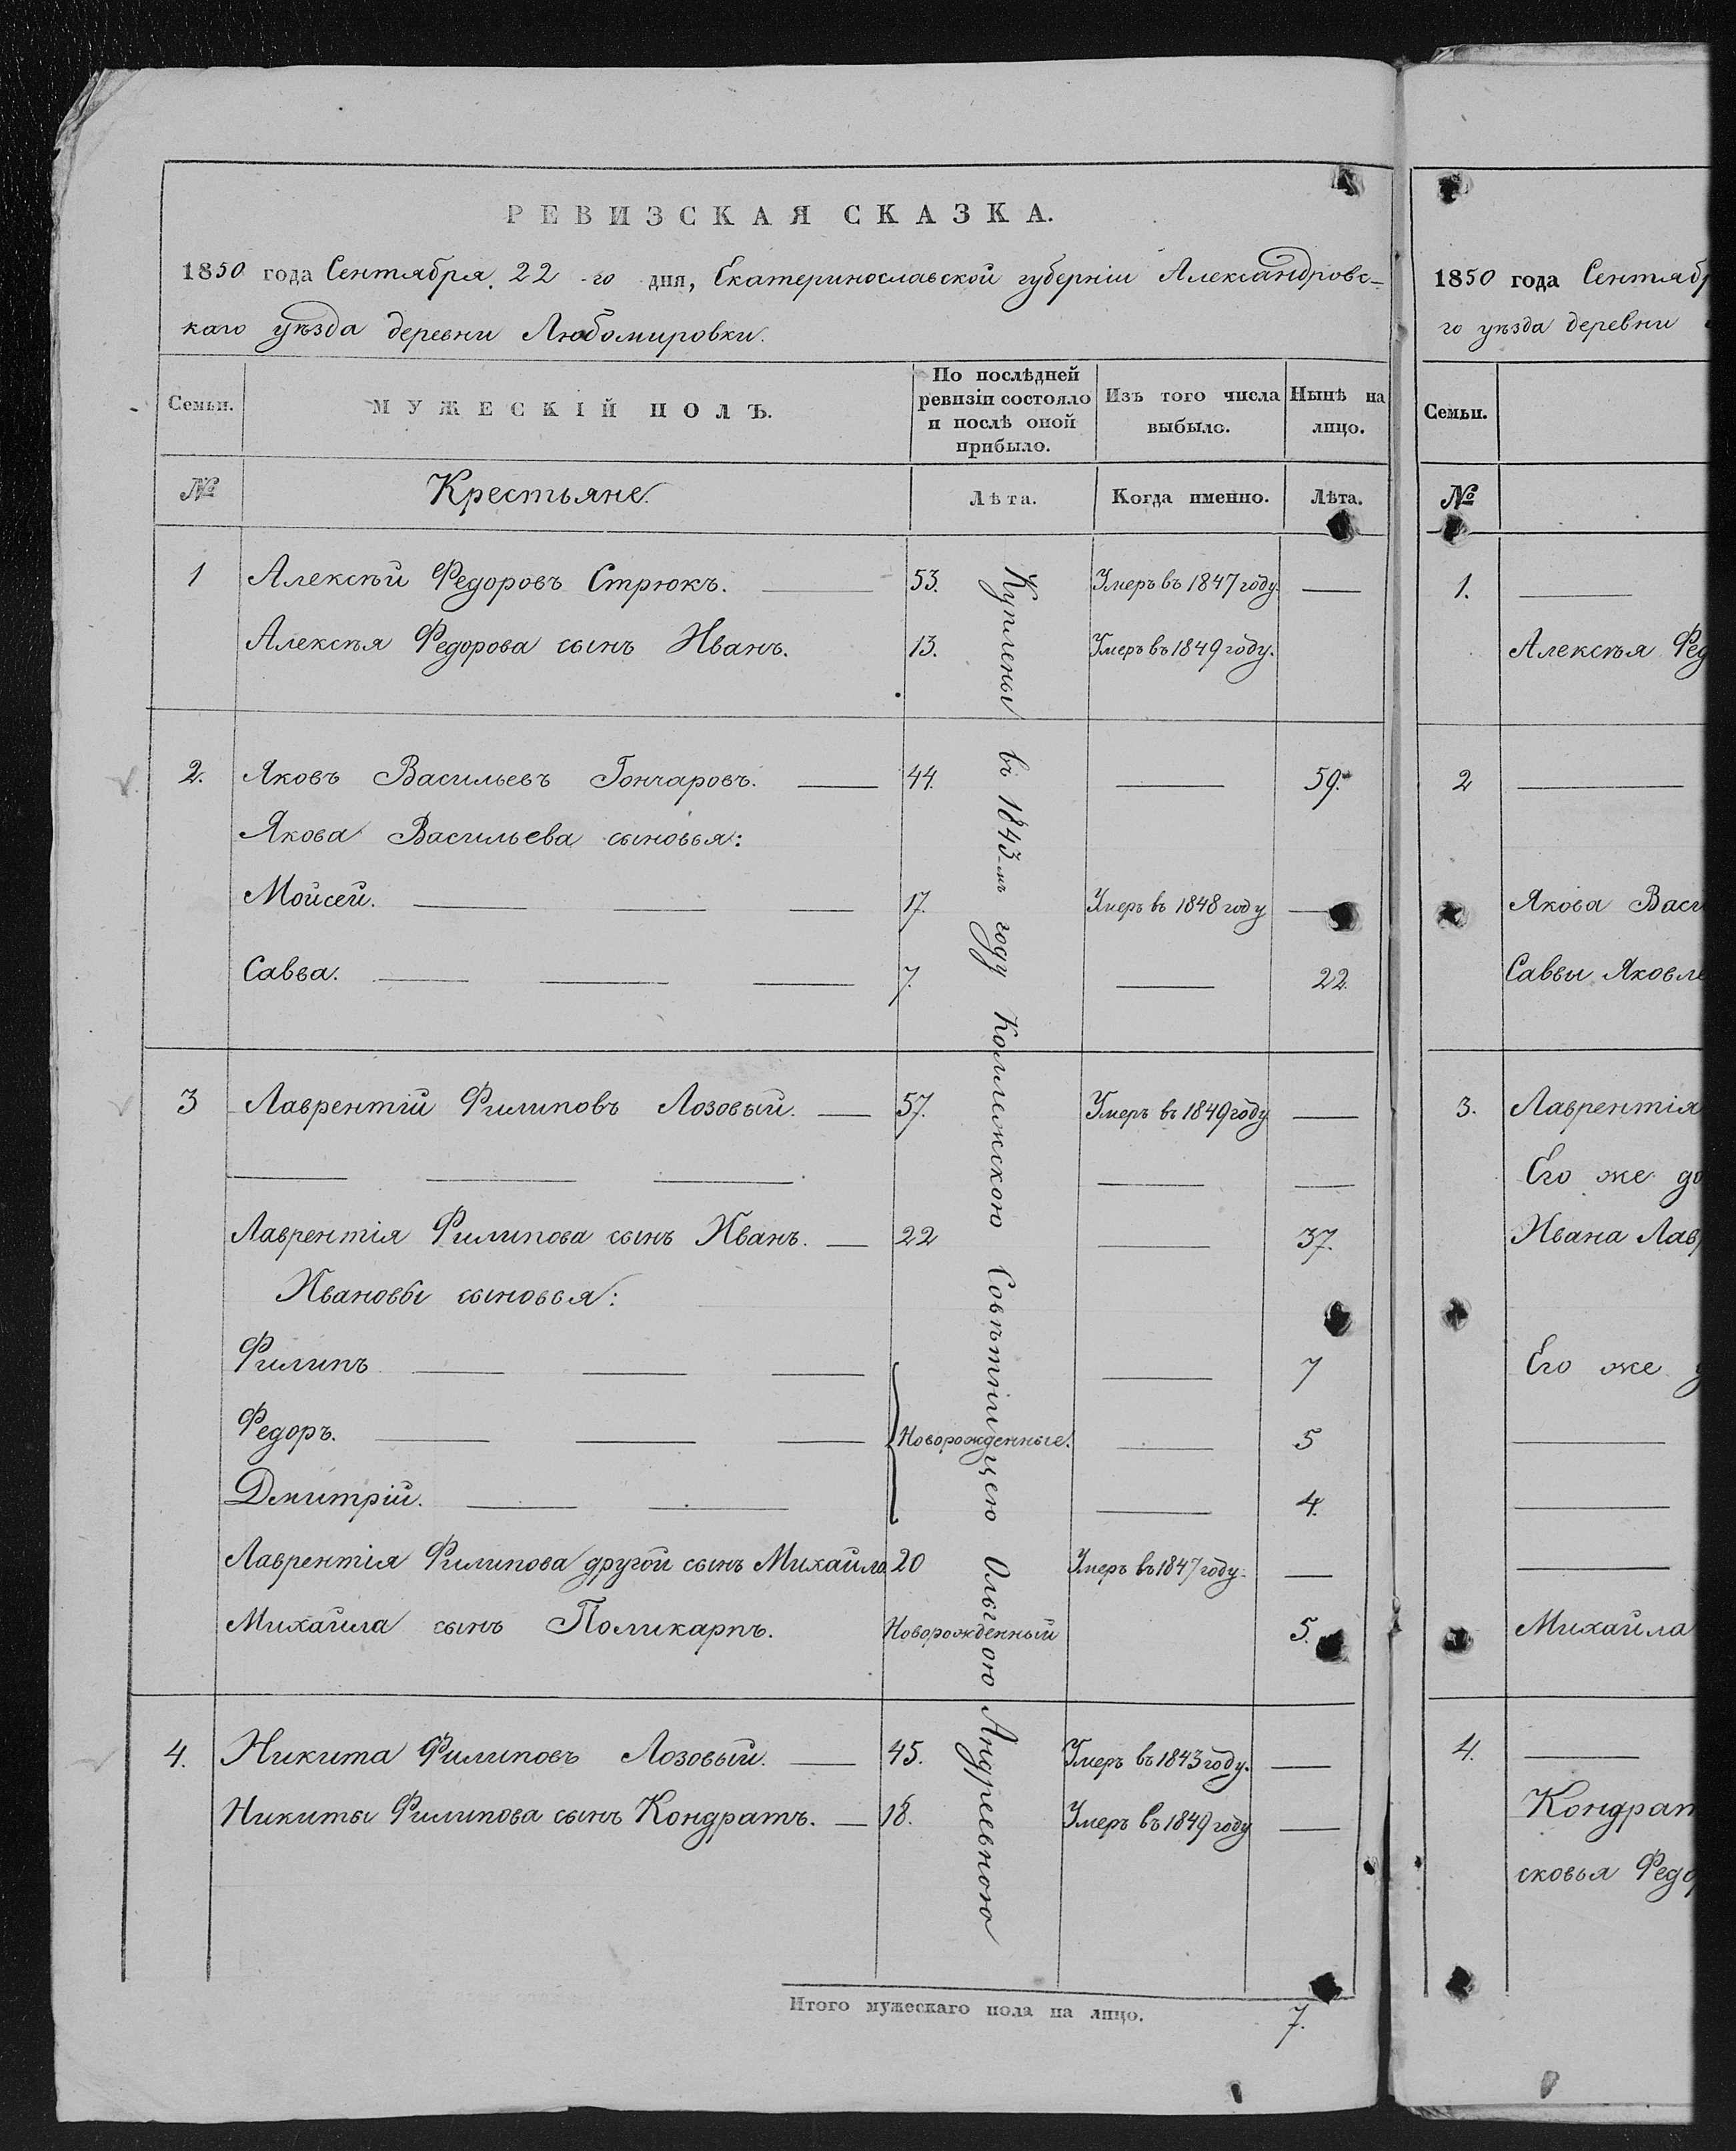 РЕВИЗСКАЯ СКАЗКА.
1850 года Сентября 22-го дня, Екатеринославской губерніи Александровс-
каго уѣзда деревни Любомировки.
Семьи.
МУЖЕСКІЙ ПОЛЪ.
По послѣдней ревизіи состояло и послѣ оной прибыло.
Изъ того числа выбыло.
Нынѣ на лицо.
№ Крестьяне. Лѣта. Когда именно. Лѣта.
1 Алексѣй Федоровъ Стрюкъ. — 53. Умеръ въ 1847 году. —
Алексѣя Федорова сынъ Иванъ. 13. Умеръ въ 1849 году.
2. Яковъ Васильевъ Гончаровъ. — 44. — 59.
Якова Васильева сыновья:
Мойсей. — — — 17. Умеръ въ 1848 году —
Савва. — — — 7. — 22.
3 Лаврентій Филиповъ Лозовый. — 57. Умеръ въ 1849 году —
— — — — —
Лаврентія Филипова сынъ Иванъ. — 22 — 37.
Ивановы сыновья:
Филипъ — — — — 7
Федоръ. — — — Новорожденные. — 5
Дмитрій. — — — 4.
Лаврентія Филипова другой сынъ Михайло 20 Умеръ въ 1847 году. —
Михайла сынъ Поликарпъ. Новорожденный 5.
4. Никита Филиповъ Лозовый. — 45. Умеръ въ 1843 году. —
Никиты Филипова сынъ Кондратъ. — 18. Умеръ въ 1849 году —
Куплены въ 1843-мъ году Коллежскою Совѣтницею Ольгою Андреевною
Итого мужескаго пола на лицо. 7.
1850 года Сентябр
го уѣзда деревни
Семьи.
№
1. —
Алексѣя Фед
2 —
Якова Васи
Саввы Яковле
3. Лаврентія
Его же до
Ивана Лав
Его же
—
—
—
Михайла
4. —
Кондрат
сковья Федо